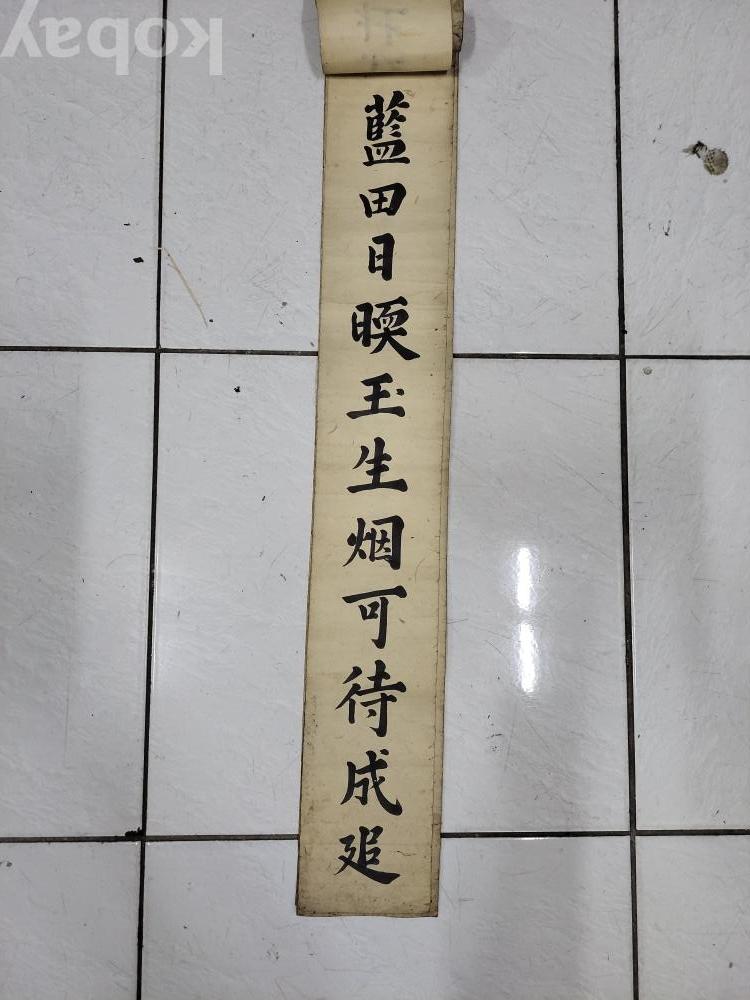 kobay
藍田日暖玉生烟可待成追